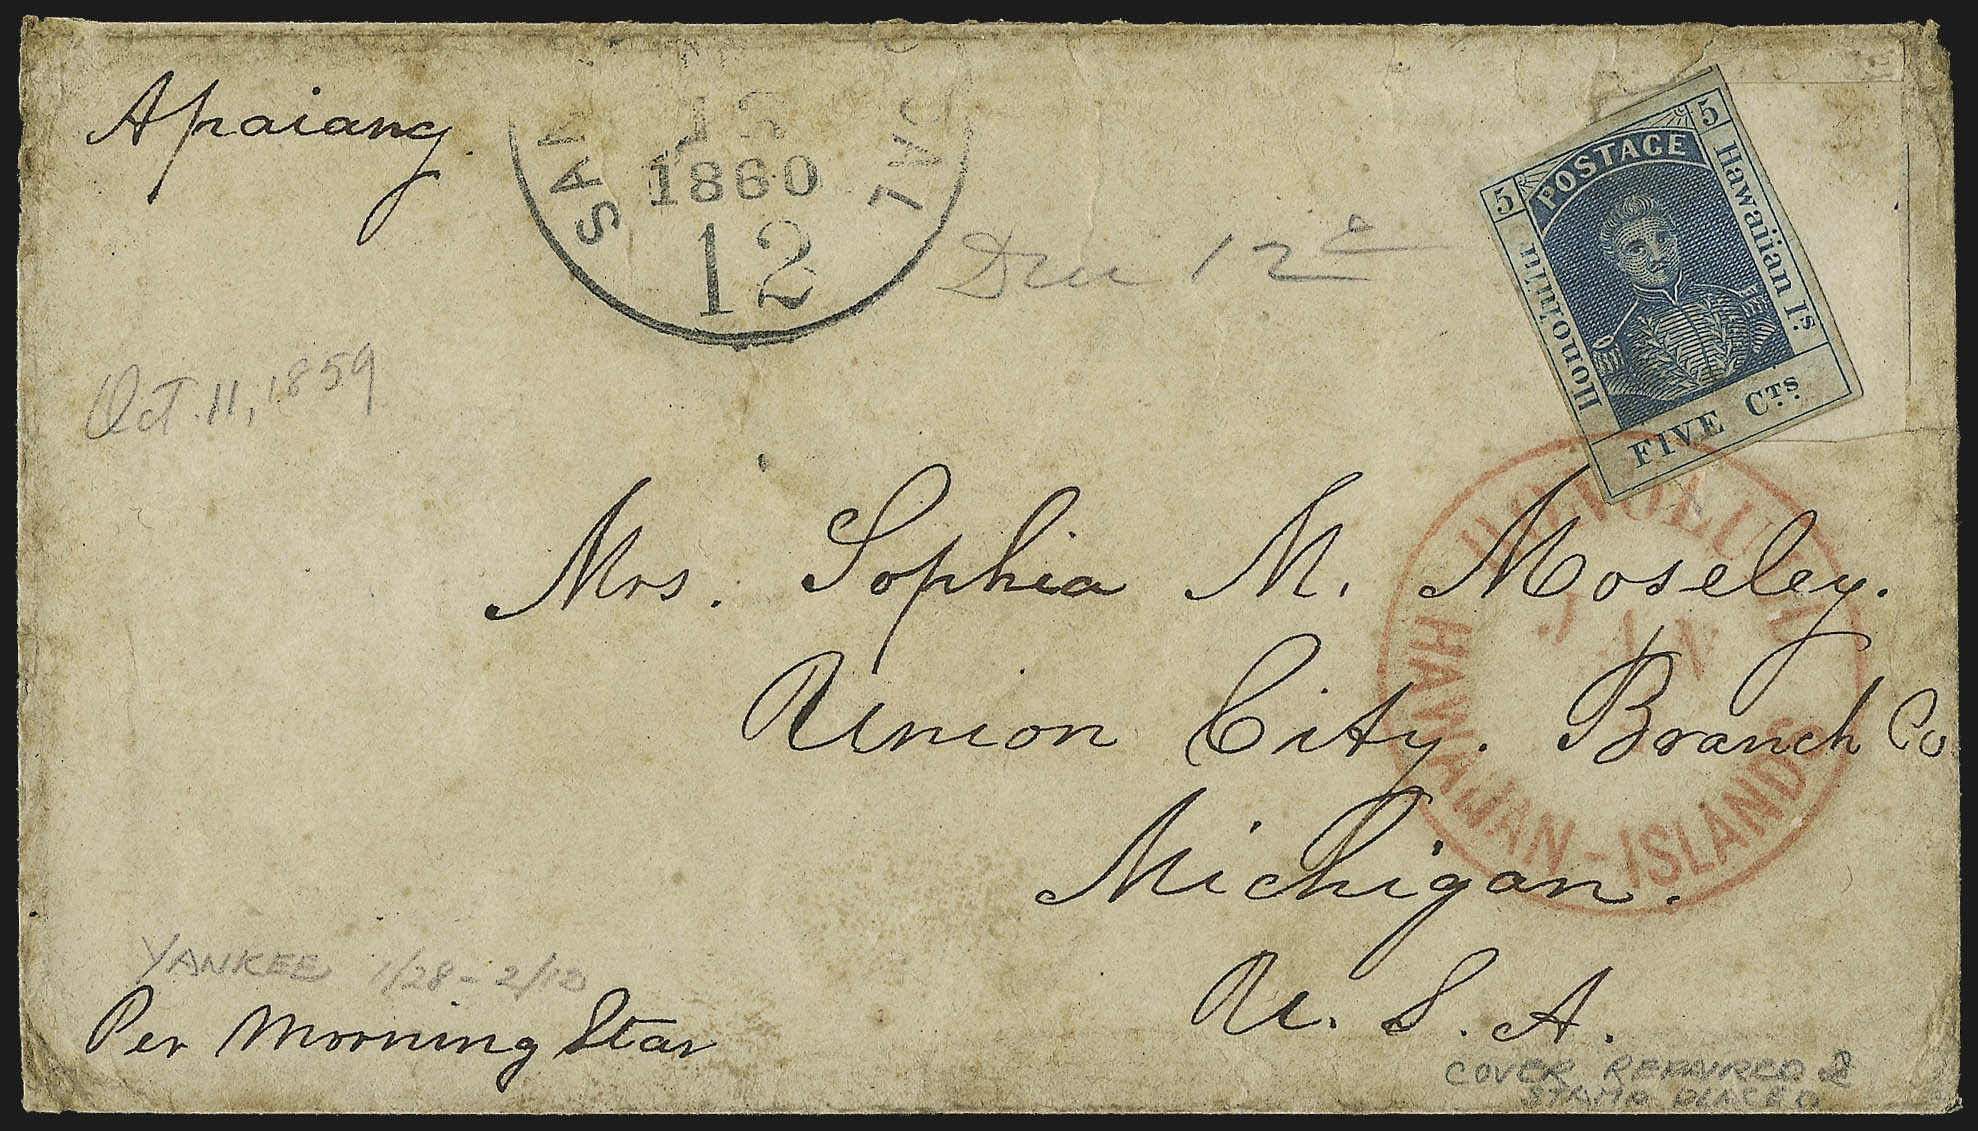 Apaiang.
SAN CAL
1860
12
Due 12c
5 POSTAGE 5
Honolulu
Hawaiian Is.
FIVE Cts.
Oct. 11, 1859
HONOLULU
JAN
HAWAIIAN-ISLANDS
Mrs. Sophia M. Moseley.
Union City. Branch Co
Michigan.
U. S. A.
YANKEE 1/28-2/12
Per Morning Star
COVER REPAIRED &
STAMP PLACED